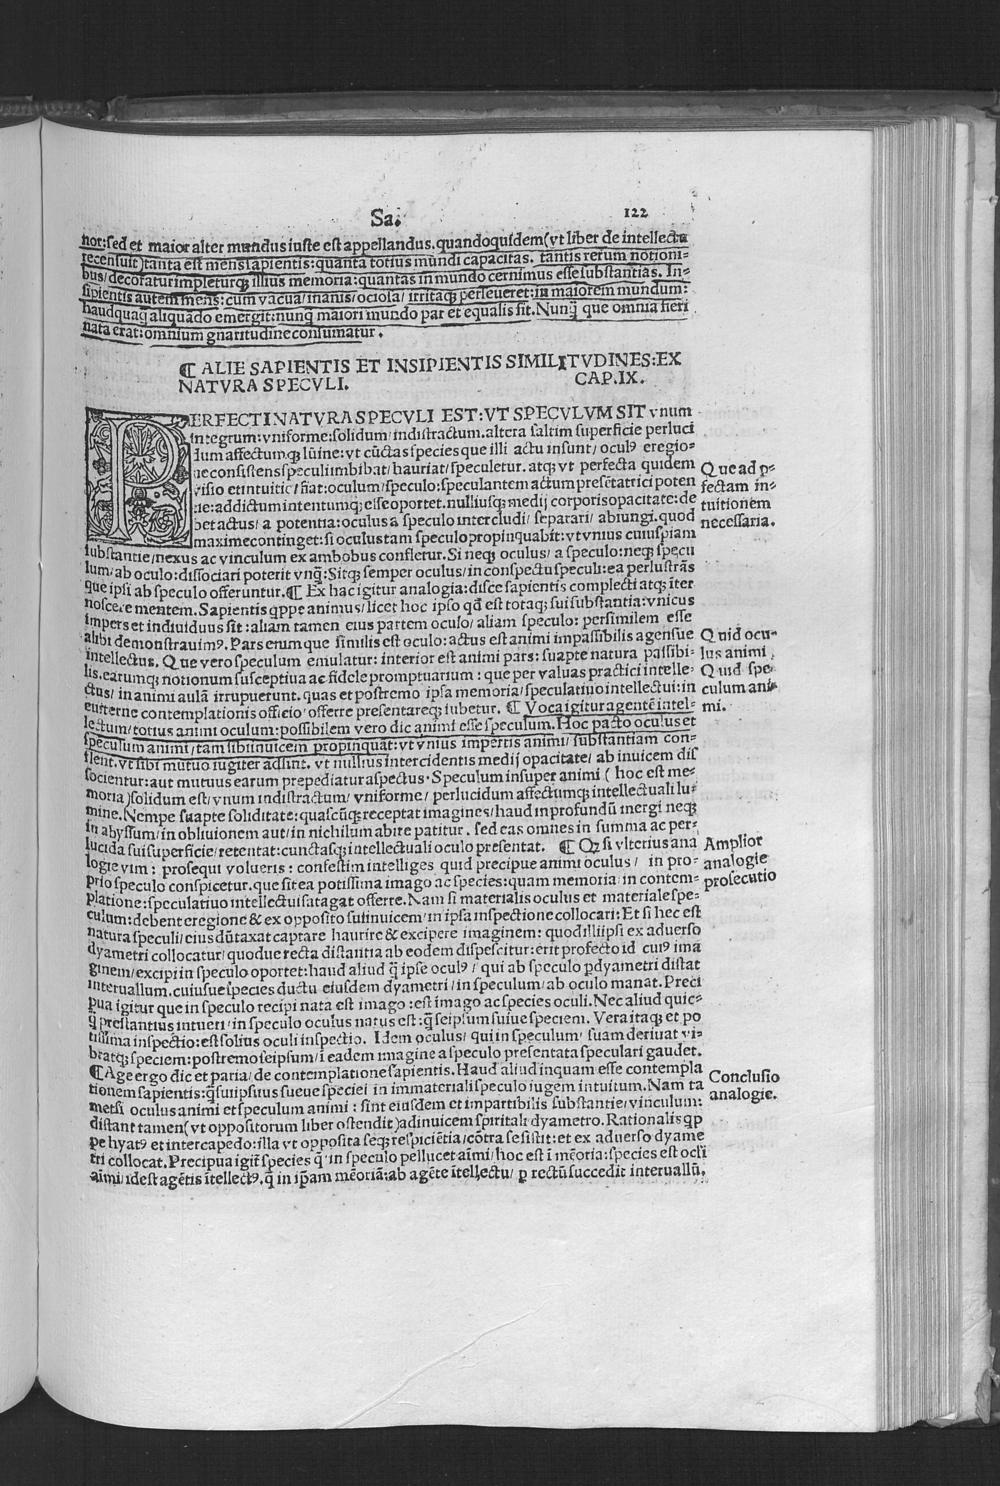 Sa.
122
nor: sed et maior alter mundus iuste est appellandus. quandoquidem (vt liber de intellectu
recensuit) tanta est mens sapientis: quanta totius mundi capacitas. tantis rerum notioni-
bus/ decoratur impleturqꝫ illius memoria: quantas in mundo cernimus esse substantias. In-
sipientis autem mens: cum vacua/ inanis/ ociosa/ irritaqꝫ perseueret: in maiorem mundum:
haudquaq̃ aliquādo emergit: nunq̃ maiori mundo par et equalis fit. Nunq̃ que omnia fieri
nata erat: omnium gnaritudine consumatur.
¶ ALIE SAPIENTIS ET INSIPIENTIS SIMILITVDINES: EX
NATVRA SPECVLI. CAP. IX.
PERFECTI NATVRA SPECVLI EST: VT SPECVLVM SIT vnum
integrum: vniforme: solidum/ indistractum. altera saltim superficie perluci
dum affectumqꝫ lūine: vt cūctas species que illi actu insunt/ oculꝰ eregio-
ne consistens speculi imbibat/ hauriat/ speculetur. atqꝫ vt perfecta quidem
visio et intuitio/ fiat: oculum/ speculo: speculantem actum presētatrici poten
tie: addictum intentumqꝫ esse oportet. nulliusqꝫ medij corporis opacitate: de
bet actus/ a potentia: oculus a speculo intercludi/ separari/ abiungi. quod
maxime continget: si oculus tam speculo propinquabit: vt vnius cuiuspiam
substantie/ nexus ac vinculum ex ambobus confletur. Si neqꝫ oculus/ a speculo: neqꝫ specu
lum/ ab oculo: dissociari poterit vnq̃: Sitqꝫ semper oculus/ in conspectu speculi: ea perlustrās
que ipsi ab speculo offeruntur. ¶ Ex hac igitur analogia: disce sapientis complecti atqꝫ iter
noscere mentem. Sapientis q̄ppe animus/ licet hoc ipso qđ est totaqꝫ sui substantia: vnicus
impers et indiuiduus sit: aliam tamen eius partem oculo/ aliam speculo: persimilem esse
alibi demonstrauimꝰ. Pars enim que similis est oculo: actus est animi impassibilis agensue
intellectus. Que vero speculum emulatur: interior est animi pars: suapte natura passibi-
lis. earumqꝫ notionum susceptiua ac fidele promptuarium: que per valuas practici intelle-
ctus/ in animi aulā irrupuerunt. quas et postremo ipsa memoria/ speculatiuo intellectui: in
euiterne contemplationis officio/ offerre presentareqꝫ iubetur. ¶ Voca igitur agentē intel-
lectum/ totius animi oculum: possibilem vero dic animi esse speculum. Hoc pacto oculus et
speculum animi/ tam sibiinuicem propinquāt: vt vnius impertis animi/ substantiam con-
flent. vt sibi mutuo iugiter adsint. vt nullius intercidentis medij opacitate/ ab inuicem dis
socientur: aut mutuus earum prepediatur aspectus. Speculum insuper animi (hoc est me-
moria) solidum est/ vnum indistractum/ vniforme/ perlucidum affectumqꝫ intellectuali lu-
mine. Nempe suapte soliditate: quascūqꝫ receptat imagines/ haud in profundū mergi neqꝫ
in abyssum/ in obliuionem aut/ in nichilum abire patitur. sed eas omnes in summa ac per-
lucida sui superficie/ retentat: cunctasqꝫ intellectuali oculo presentat. ¶ Qꝫ si vlterius ana
logie vim: prosequi volueris: confestim intelliges quid precipue animi oculus/ in pro-
prio speculo conspicetur. que sit ea potissima imago ac species: quam memoria in contem-
platione: speculatiuo intellectui satagat offerre. Nam si materialis oculus et materiale spe-
culum: debent eregione & ex opposito suiinuicem/ in ipsa inspectione collocari: Et si hec est
natura speculi/ eius dūtaxat captare haurire & excipere imaginem: quod illi ipsi ex aduerso
dyametri collocatur/ quodue recta distantia ab eodem dispescitur: erit profecto id cuiꝰ ima
ginem/ excipi in speculo oportet: haud aliud q̃ ipse oculꝰ/ qui ab speculo ꝑdyametri distat
interuallum. cuiusue species ductu eiusdem dyametri/ in speculum/ ab oculo manat. Preci
pua igitur que in speculo recipi nata est imago: est imago ac species oculi. Nec aliud quic-
q̃ prestantius intueri/ in speculo oculus natus est: q̃ seipsum suiue speciem. Vera itaqꝫ et po
tissima inspectio: est solius oculi inspectio. Idem oculus/ qui in speculum/ suam deriuat vi-
bratqꝫ speciem: postremo seipsum/ ī eadem imagine a speculo presentata speculari gaudet.
¶ Age ergo dic et paria/ de contemplatione sapientis. Haud aliud inquam esse contempla
tionem sapientis: q̃ sui ipsius sueue speciei in immateriali speculo iugem intuitum. Nam ta
metsi oculus animi et speculum animi: sint eiusdem et impartibilis substantie/ vinculum:
distant tamen (vt oppositorum liber ostendit) adinuicem spiritali dyametro. Rationalis qꝑ
pe hyatꝰ et intercapedo: illa vt opposita seqꝫ respiciētia/ cōtra se sistit: et ex aduerso dyame
tri collocat. Precipua igit̃ species q̄ in speculo pellucet aīmi/ hoc est ī mēoria: species est ocli
aīmi/ idest agētis ītellectꝰ. q̄ in ip̄am mēoriā: ab agēte ītellectu/ ꝑ rectū succedit interuallū.
Que ad p-
fectam in-
tuitionem
necessaria.
Quid ocu-
lus animi,
Quid spe-
culum ani-
mi.
Amplior
analogie
prosecutio
Conclusio
analogie.